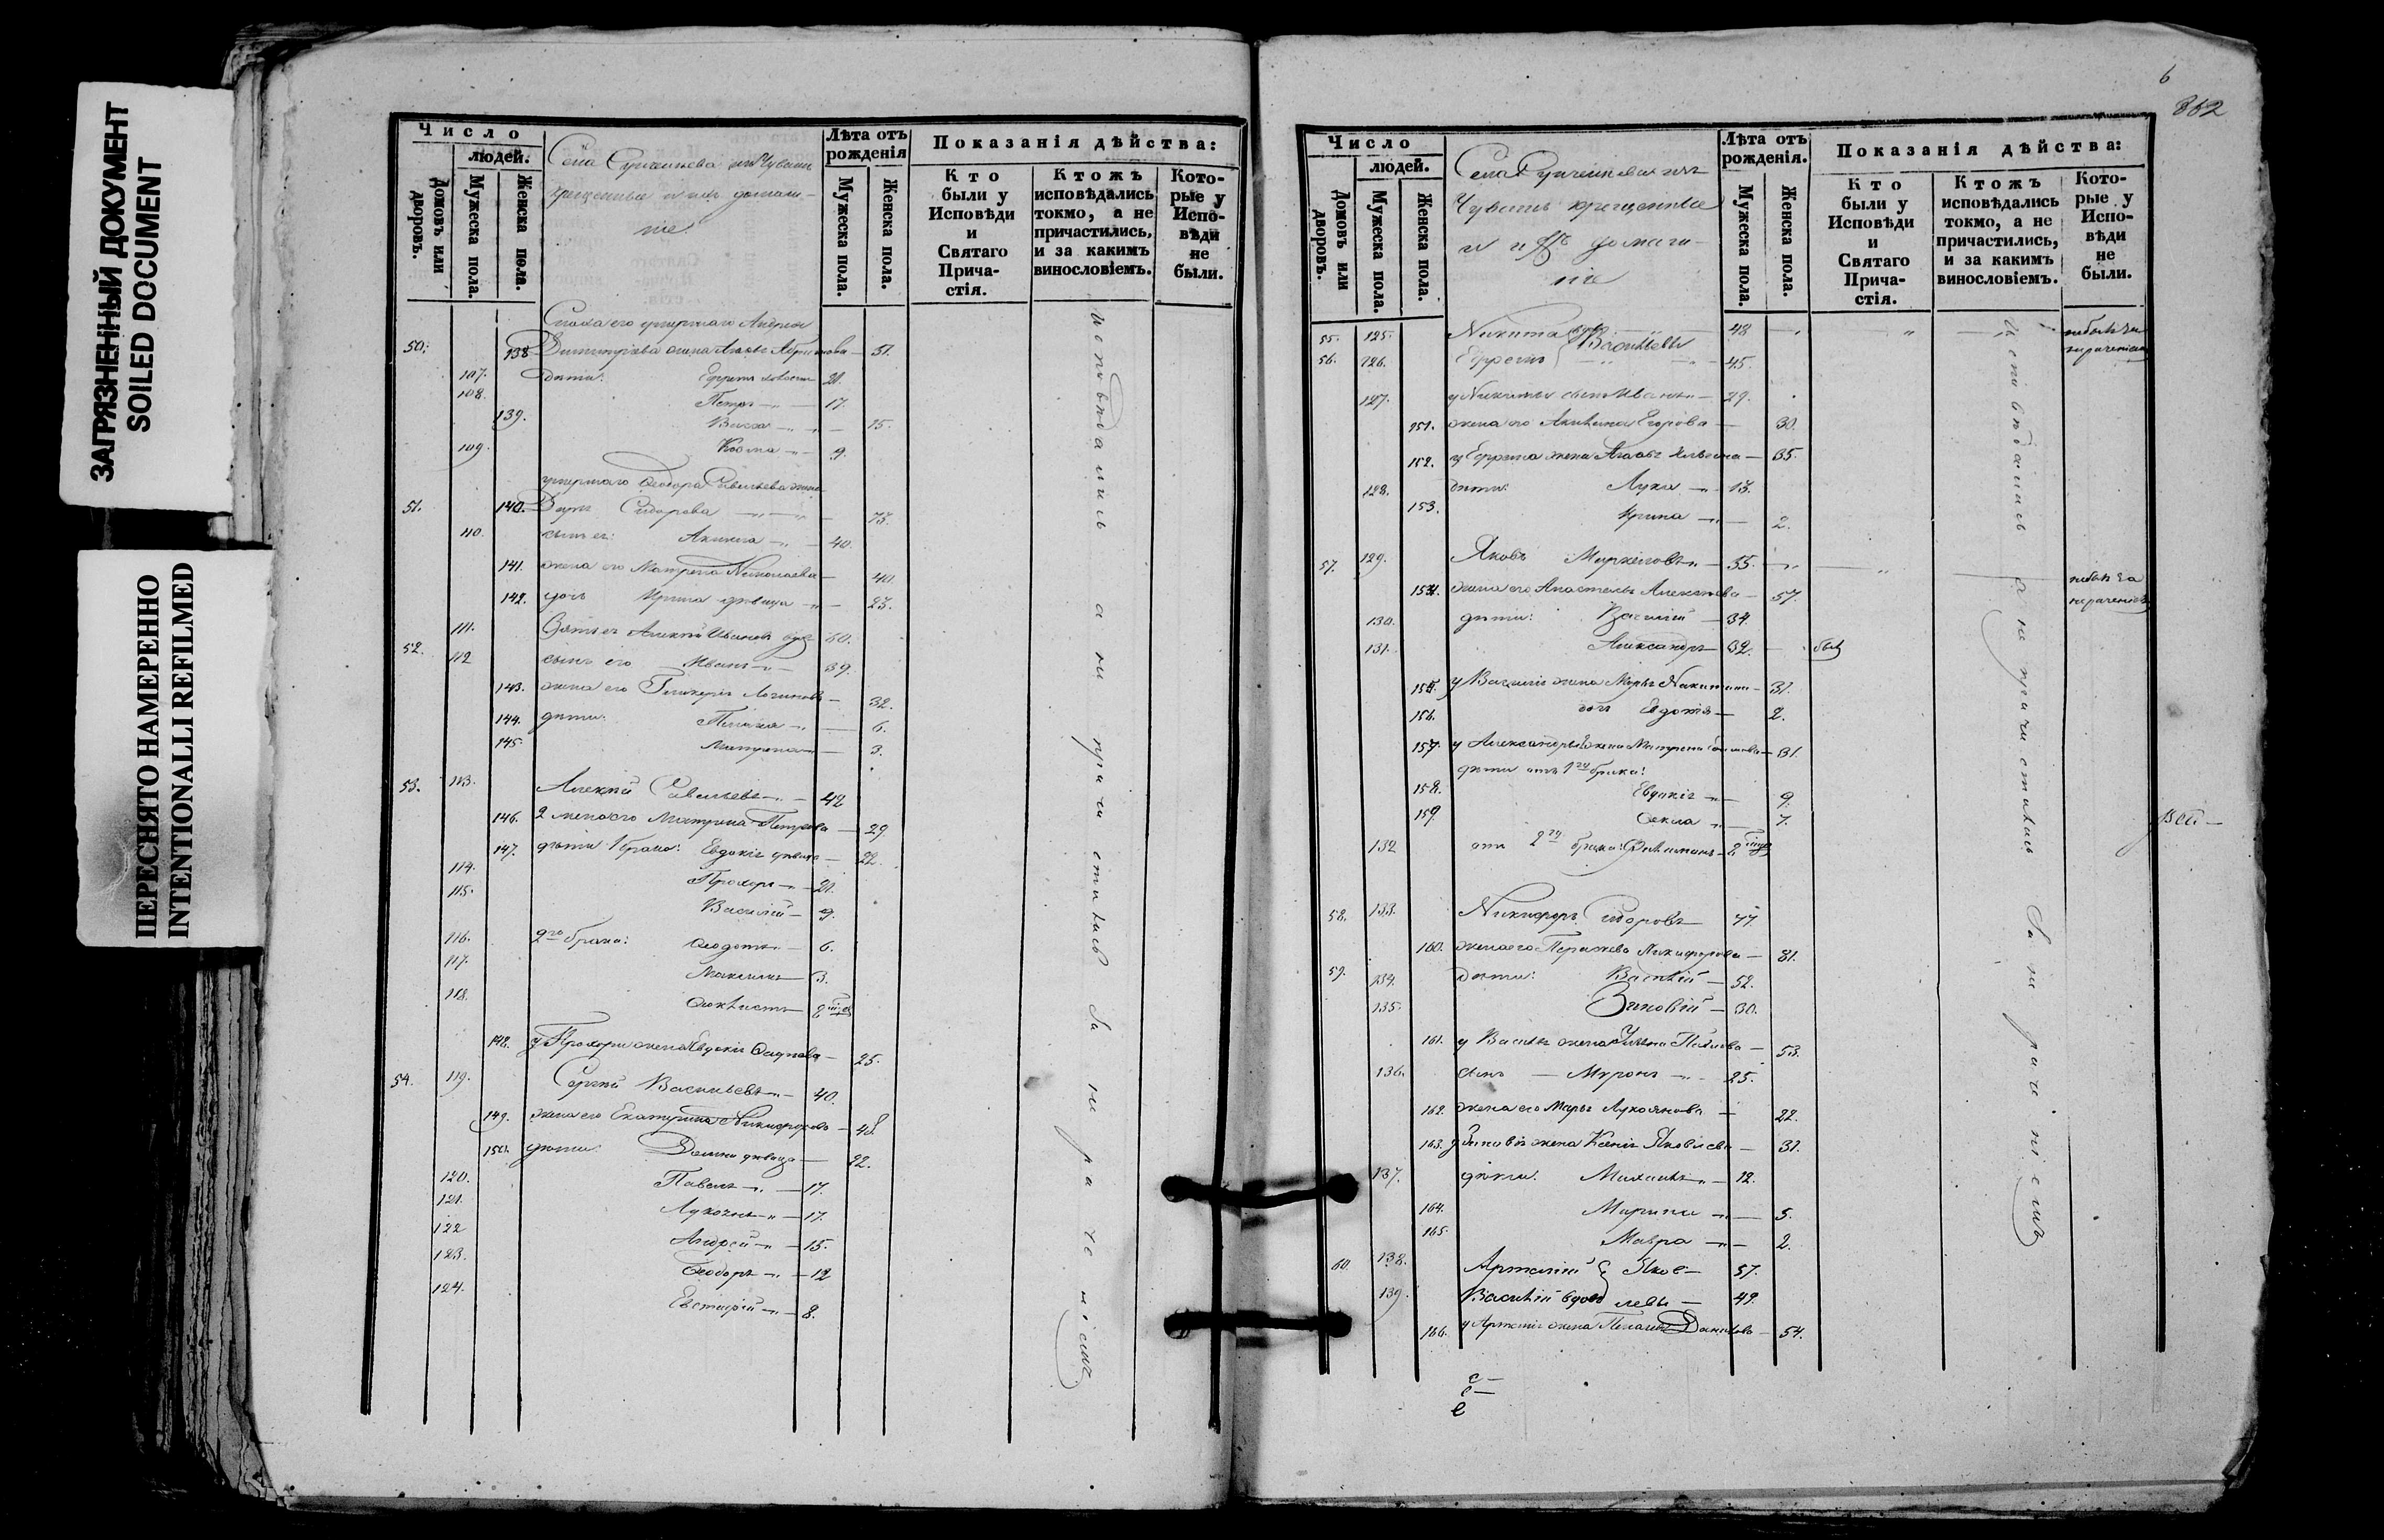 ЗАГРЯЗНЕННЫЙ ДОКУМЕНТ
SOILED DOCUMENT
ПЕРЕСНЯТО НАМЕРЕННО
INTENTIONALLI REFILMED
Число
людей.
Домовъ или дворовъ.
Мужеска пола.
Женска пола.
Села из Чувашъ
крещенные и ихъ домаш-
ніе
Лѣта отъ рожденія
Мужеска пола.
Женска пола.
Показанія дѣйства:
Кто были у Исповѣди и Святаго Прича-стія.
Ктожъ исповѣдались токмо, а не причастились, и за какимъ винословіемъ.
Кото-рые у Испо-вѣди не были.
его умершаго Андрея
50. 138 жена 51.
107. дѣти: Ефремъ 21.
108. Петръ 17.
139. Васса 15.
109. Козма 9.
умершаго Ѳеодора Савельева жена
51. 140. Дарья Сидорова 73.
110. сынъ ея: 40.
141. жена его Матрена Николаева 40.
142. дочь Ирина дѣвица 23.
111. Зять ея Алексѣй Ивановъ вдов 60.
52. 112 сынъ его Иванъ 39.
143. жена его Гликерія Логинова 32.
144. дѣти: Пелагія 6.
145. Матрена 3.
53. 113. Алексѣй Савельевъ 42
146. 2 жена его Матрена Петрова 29.
147. дѣти 1 брака: Евдокія дѣвица 22.
114. Прохоръ 21.
115. Василій 9.
116. 2го брака: Ѳеодотъ 6.
117. Максимъ 3.
118. Ѳеоктистъ
148. у Прохора жена Евдокія 25.
54. 119. Сергѣй Васильевъ 40.
149. жена его Екатерина Никифорова 48.
150. дѣти: Домна дѣвица 22.
120. Павелъ 17.
121. Лукоянъ 17.
122 Андрей 15.
123. Ѳеодоръ 12
124. Евстафій 8.
исповѣдались а не причастились за нераченіемъ
6
862
Число
людей.
Домовъ или дворовъ.
Мужеска пола.
Женска пола.
Села изъ
Чувашъ крещенные
и ихъ домаш-
ніе
Лѣта отъ рожденія.
Мужеска пола.
Женска пола.
Показанія дѣйства:
Кто были у Исповѣди и Святаго Прича-стія.
Ктожъ исповѣдались токмо, а не причастились, и за какимъ винословіемъ.
Кото-рые у Испо-вѣди не были.
55. 125. Никита вдов 48 небылъ за нераченіемъ
56. 126. Ефремъ Васильевы 45.
127. у Никиты сынъ Иванъ 29.
151. жена его Акилина Егорова 30.
152. у Ефрема жена 35.
128. дѣти: Лука 13.
153. Ирина 2.
57. 129. Яковъ Маркеловъ 55. небылъ за нераченіемъ
154. жена его Анастасія Алексѣева 57.
130. дѣти: Василій 34.
131. Александръ 32. былъ
155. у Василія жена Марья Никитина 31.
156. дочь Евдокія 2.
157. у Александра жена Матрена 31.
дѣти отъ 1го брака:
158. Евдокія 9.
159. Ѳекла 7.
132 отъ 2го брака: Филимонъ
58. 133. Никифоръ Сидоровъ 77.
160. жена его Никифорова 81.
59. 134. дѣти: Василій 52.
135. Зиновій 30.
161. у Василья жена 53.
136. сынъ Миронъ 25.
162. жена его Марья Лукоянова 22.
163. у Зиновія жена Ксенія Яковлева 31.
137. дѣти: Михаилъ 12.
164. Марина 5.
165. Мавра 2.
60. 138. Артемій Яков- 57.
139. Василій вдовъ левы 49.
166. у Артемія жена Пелагія Данилова 54.
исповѣдались а не причастились за нераченіемъ